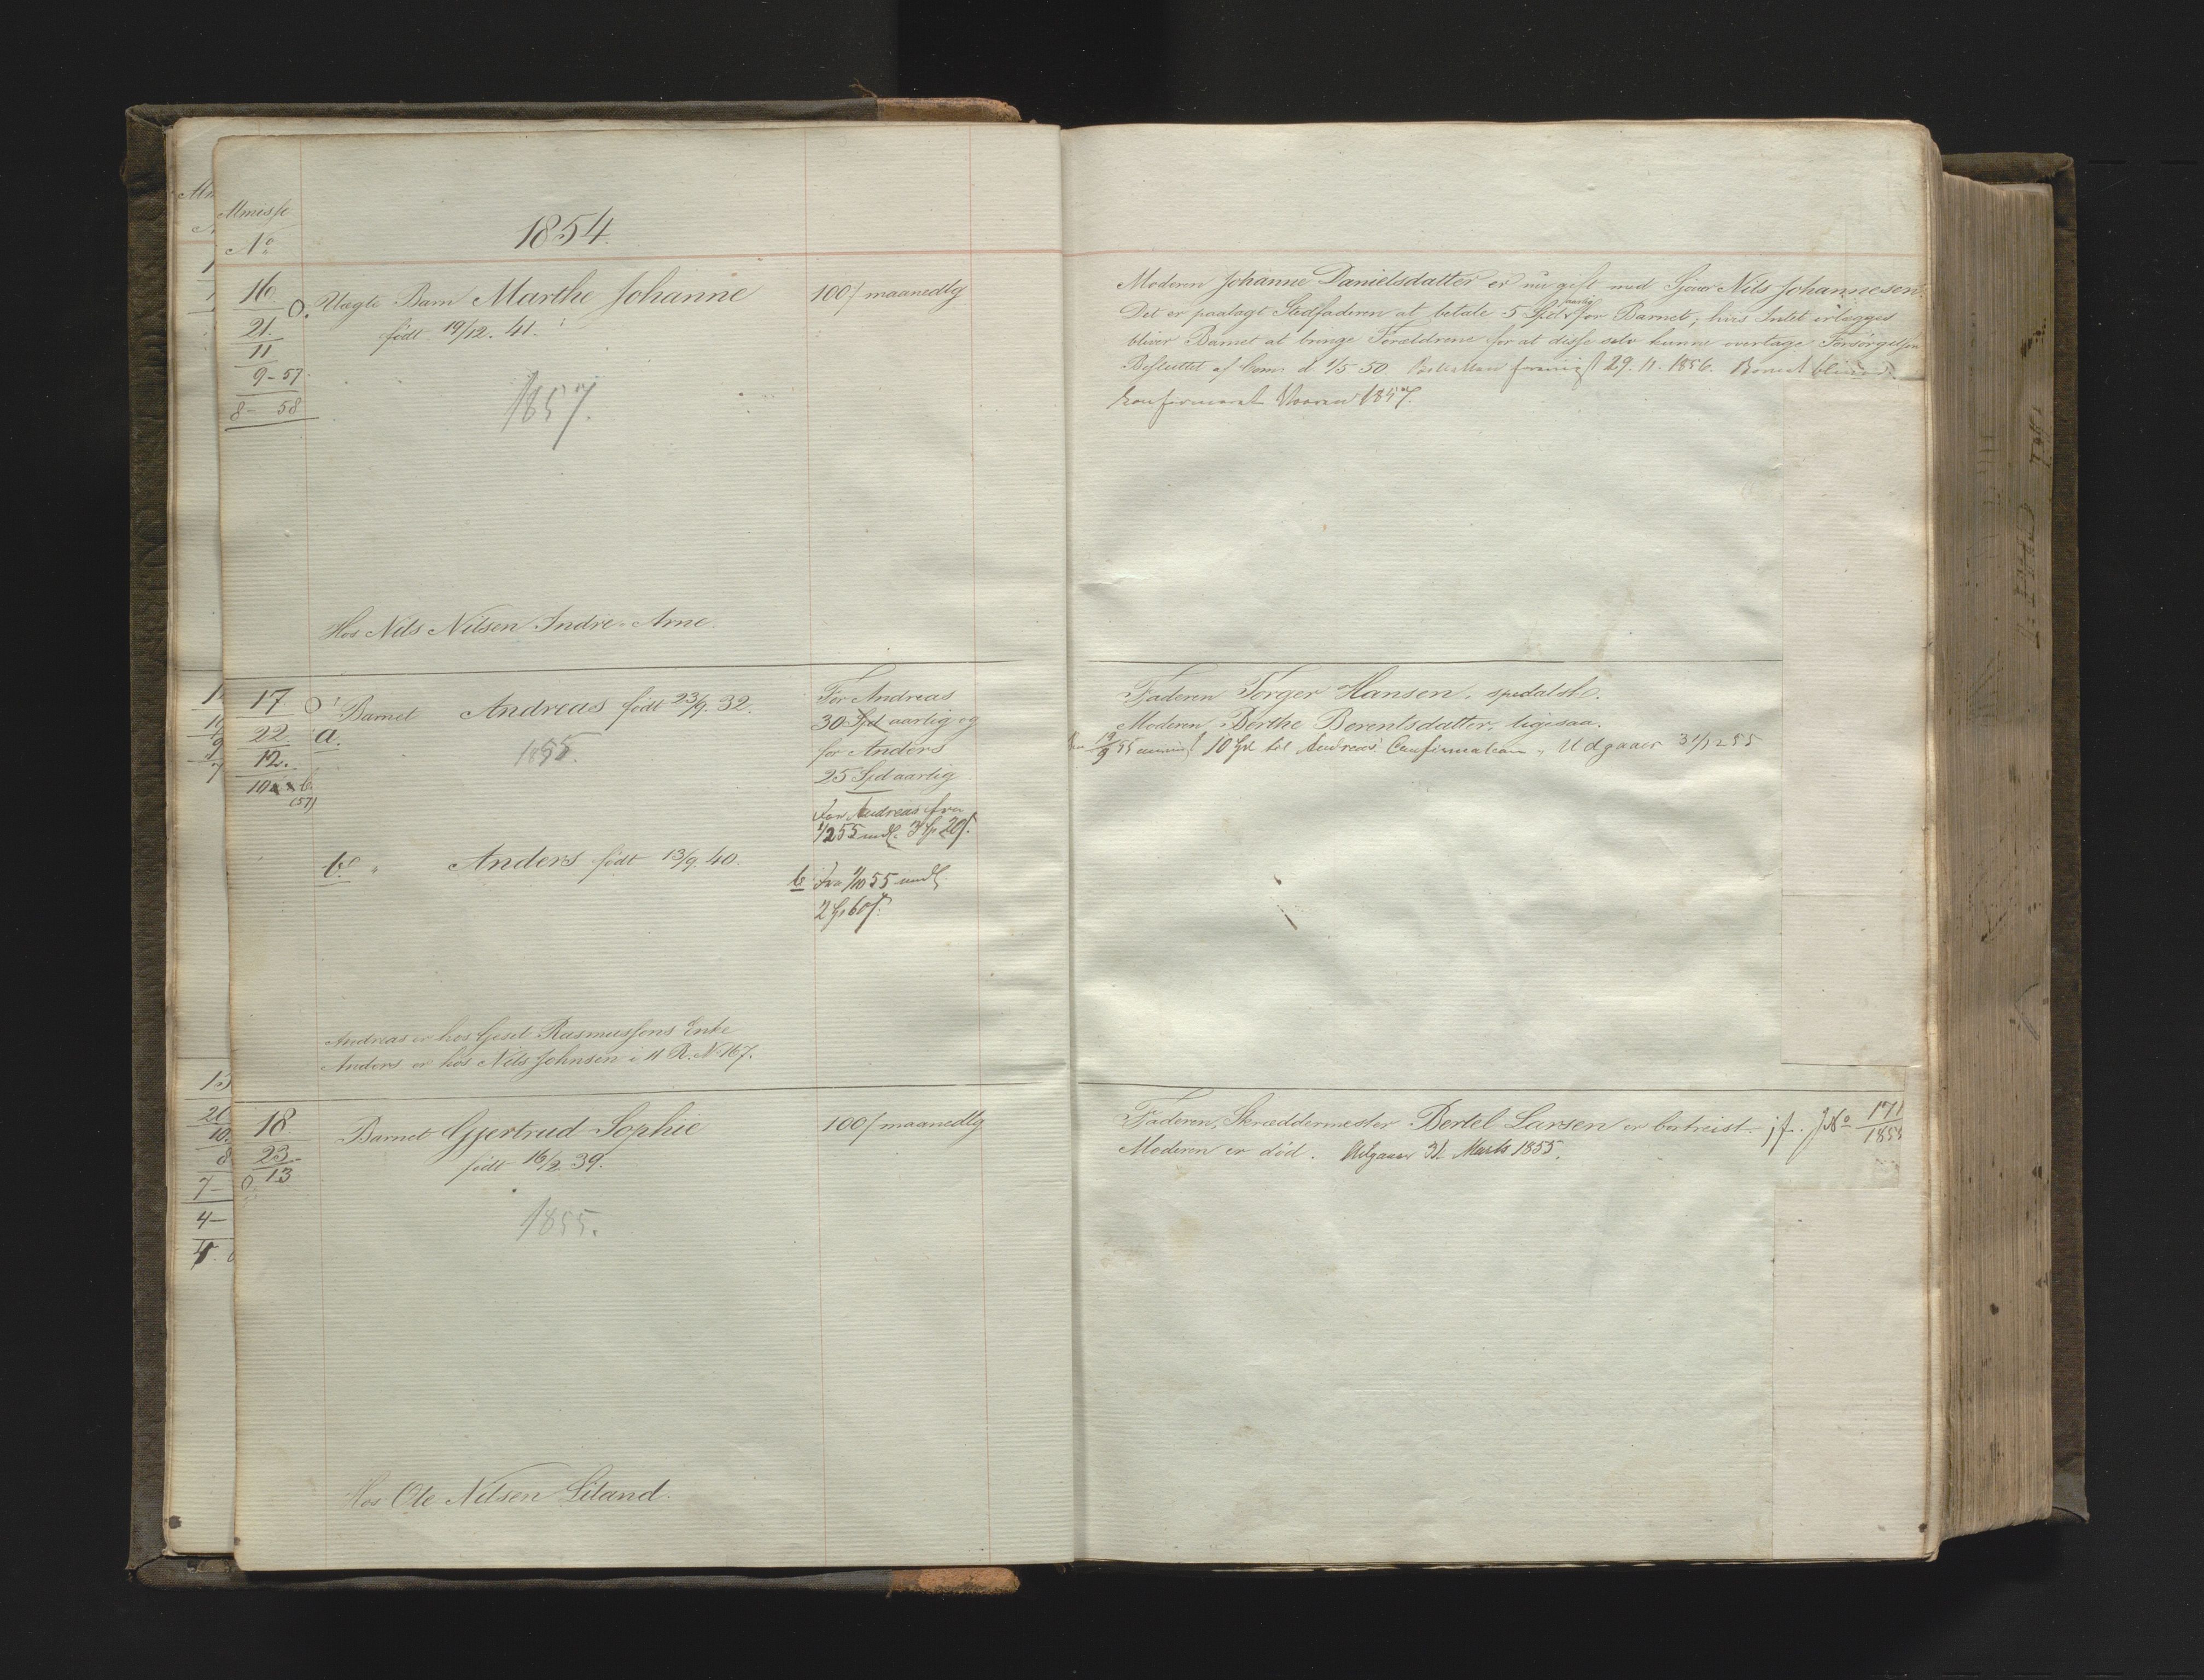 Almisse
No
1854.
16
21.
11
9-57
8-58
O. Uægte Barn Marthe Johanne
født 19/12. 41.
1857.
100 ß maanedlg
Hos Nils Nilsen Indre-Arne.
17
22
12.
10 b.
(57)
O Barnet Andreas født 23/9. 32.
a.
1855.
For Andreas
30 Spd aarlig og
for Anders
25 Spd aarlig
For Andreas fra
1/2 55 mdl. 3 Sp 20 ß.
b. " Anders født 13/9. 40.
b Fra 1/10 55 mdl
2 Sp 60 ß.
Andreas er hos Gesel Rasmussens Enke
Anders er hos Nils Johnsen i 11 R. No 167.
18.
23
13
O
Barnet Gjertrud Sophie
født 16/2. 39.
1855.
100 ß maanedlg
Hos Ole Nilsen Liland.
Moderen Johanne Danielsdatter er nu gift med Nils Johannesen.
Det er paalagt Stedfaderen at betale 5 Spd aarlig for Barnet; hvis Intet erlægges
bliver Barnet at bringe Forældrene for at disse selv kunne overtage Forsørgelsen
Besluttet af Com. d. 1/5 50. 29. 11. 1856. Barnet bliver
konfirmeret Vaaren 1857.
Faderen Torger Hansen, spedalsk.
Moderen, Berthe Berentsdatter, ligesaa.
19/9 55 10 Spd til Andreas' Confirmation. Udgaaer 31/12 55
Faderen, Skræddermester Bertel Larsen er bortreist. jf. JNo 171/1855
Moderen er död. Udgaaer 31 Marts 1855.